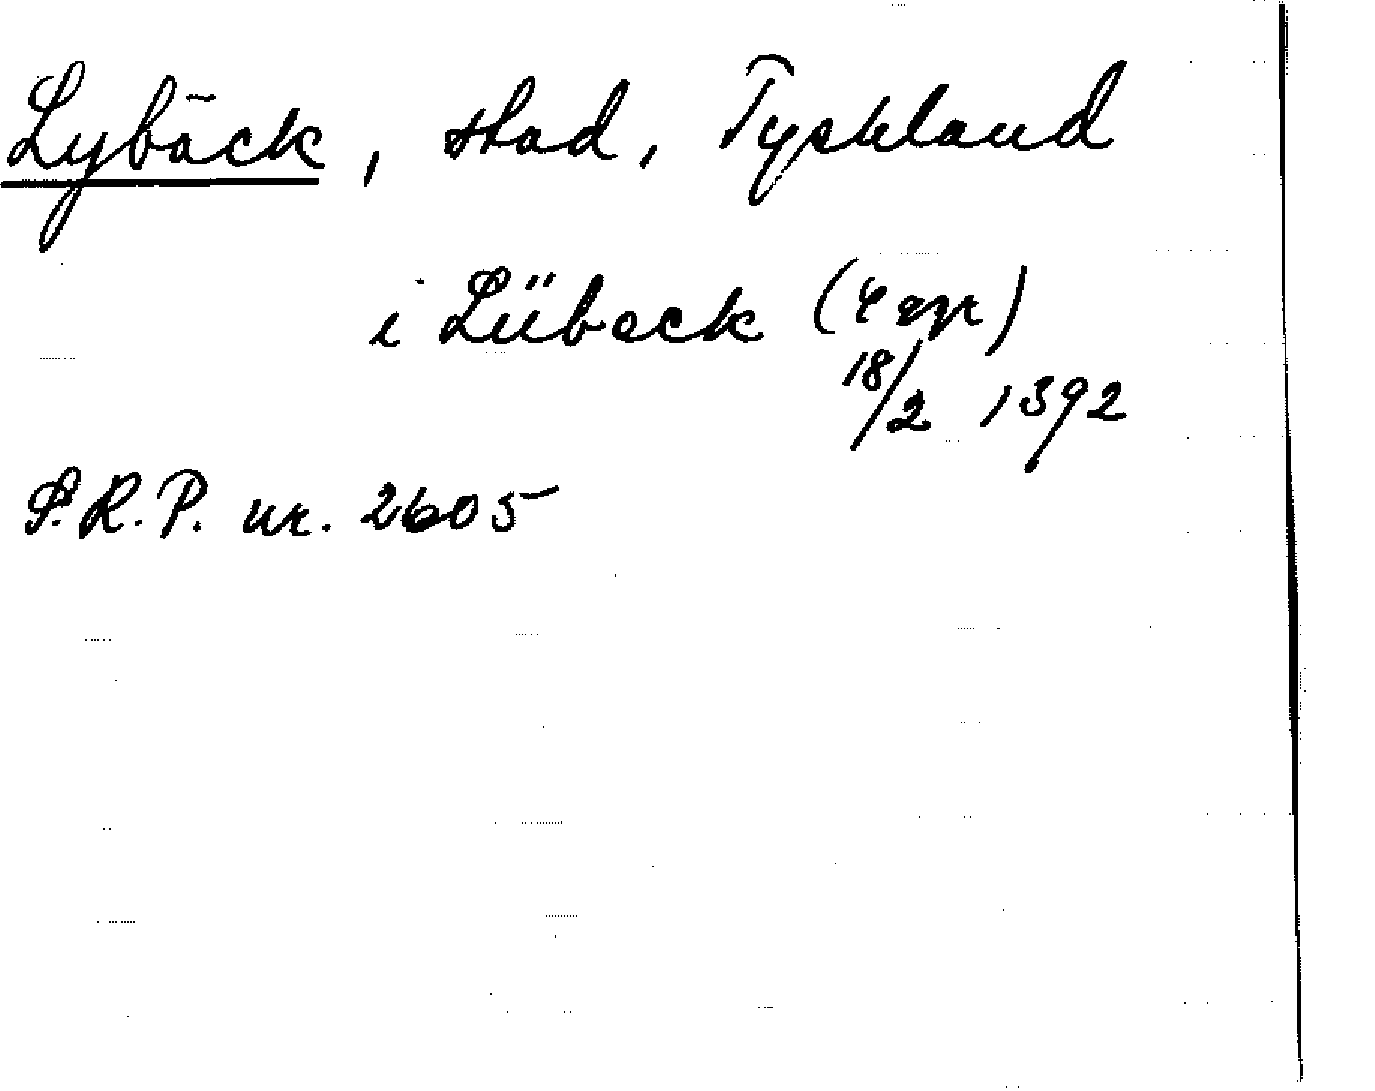 Lybäck, stad, Tyskland
i Lübeck (4 ggr)
18/2 1392
S.R.P. nr. 2605